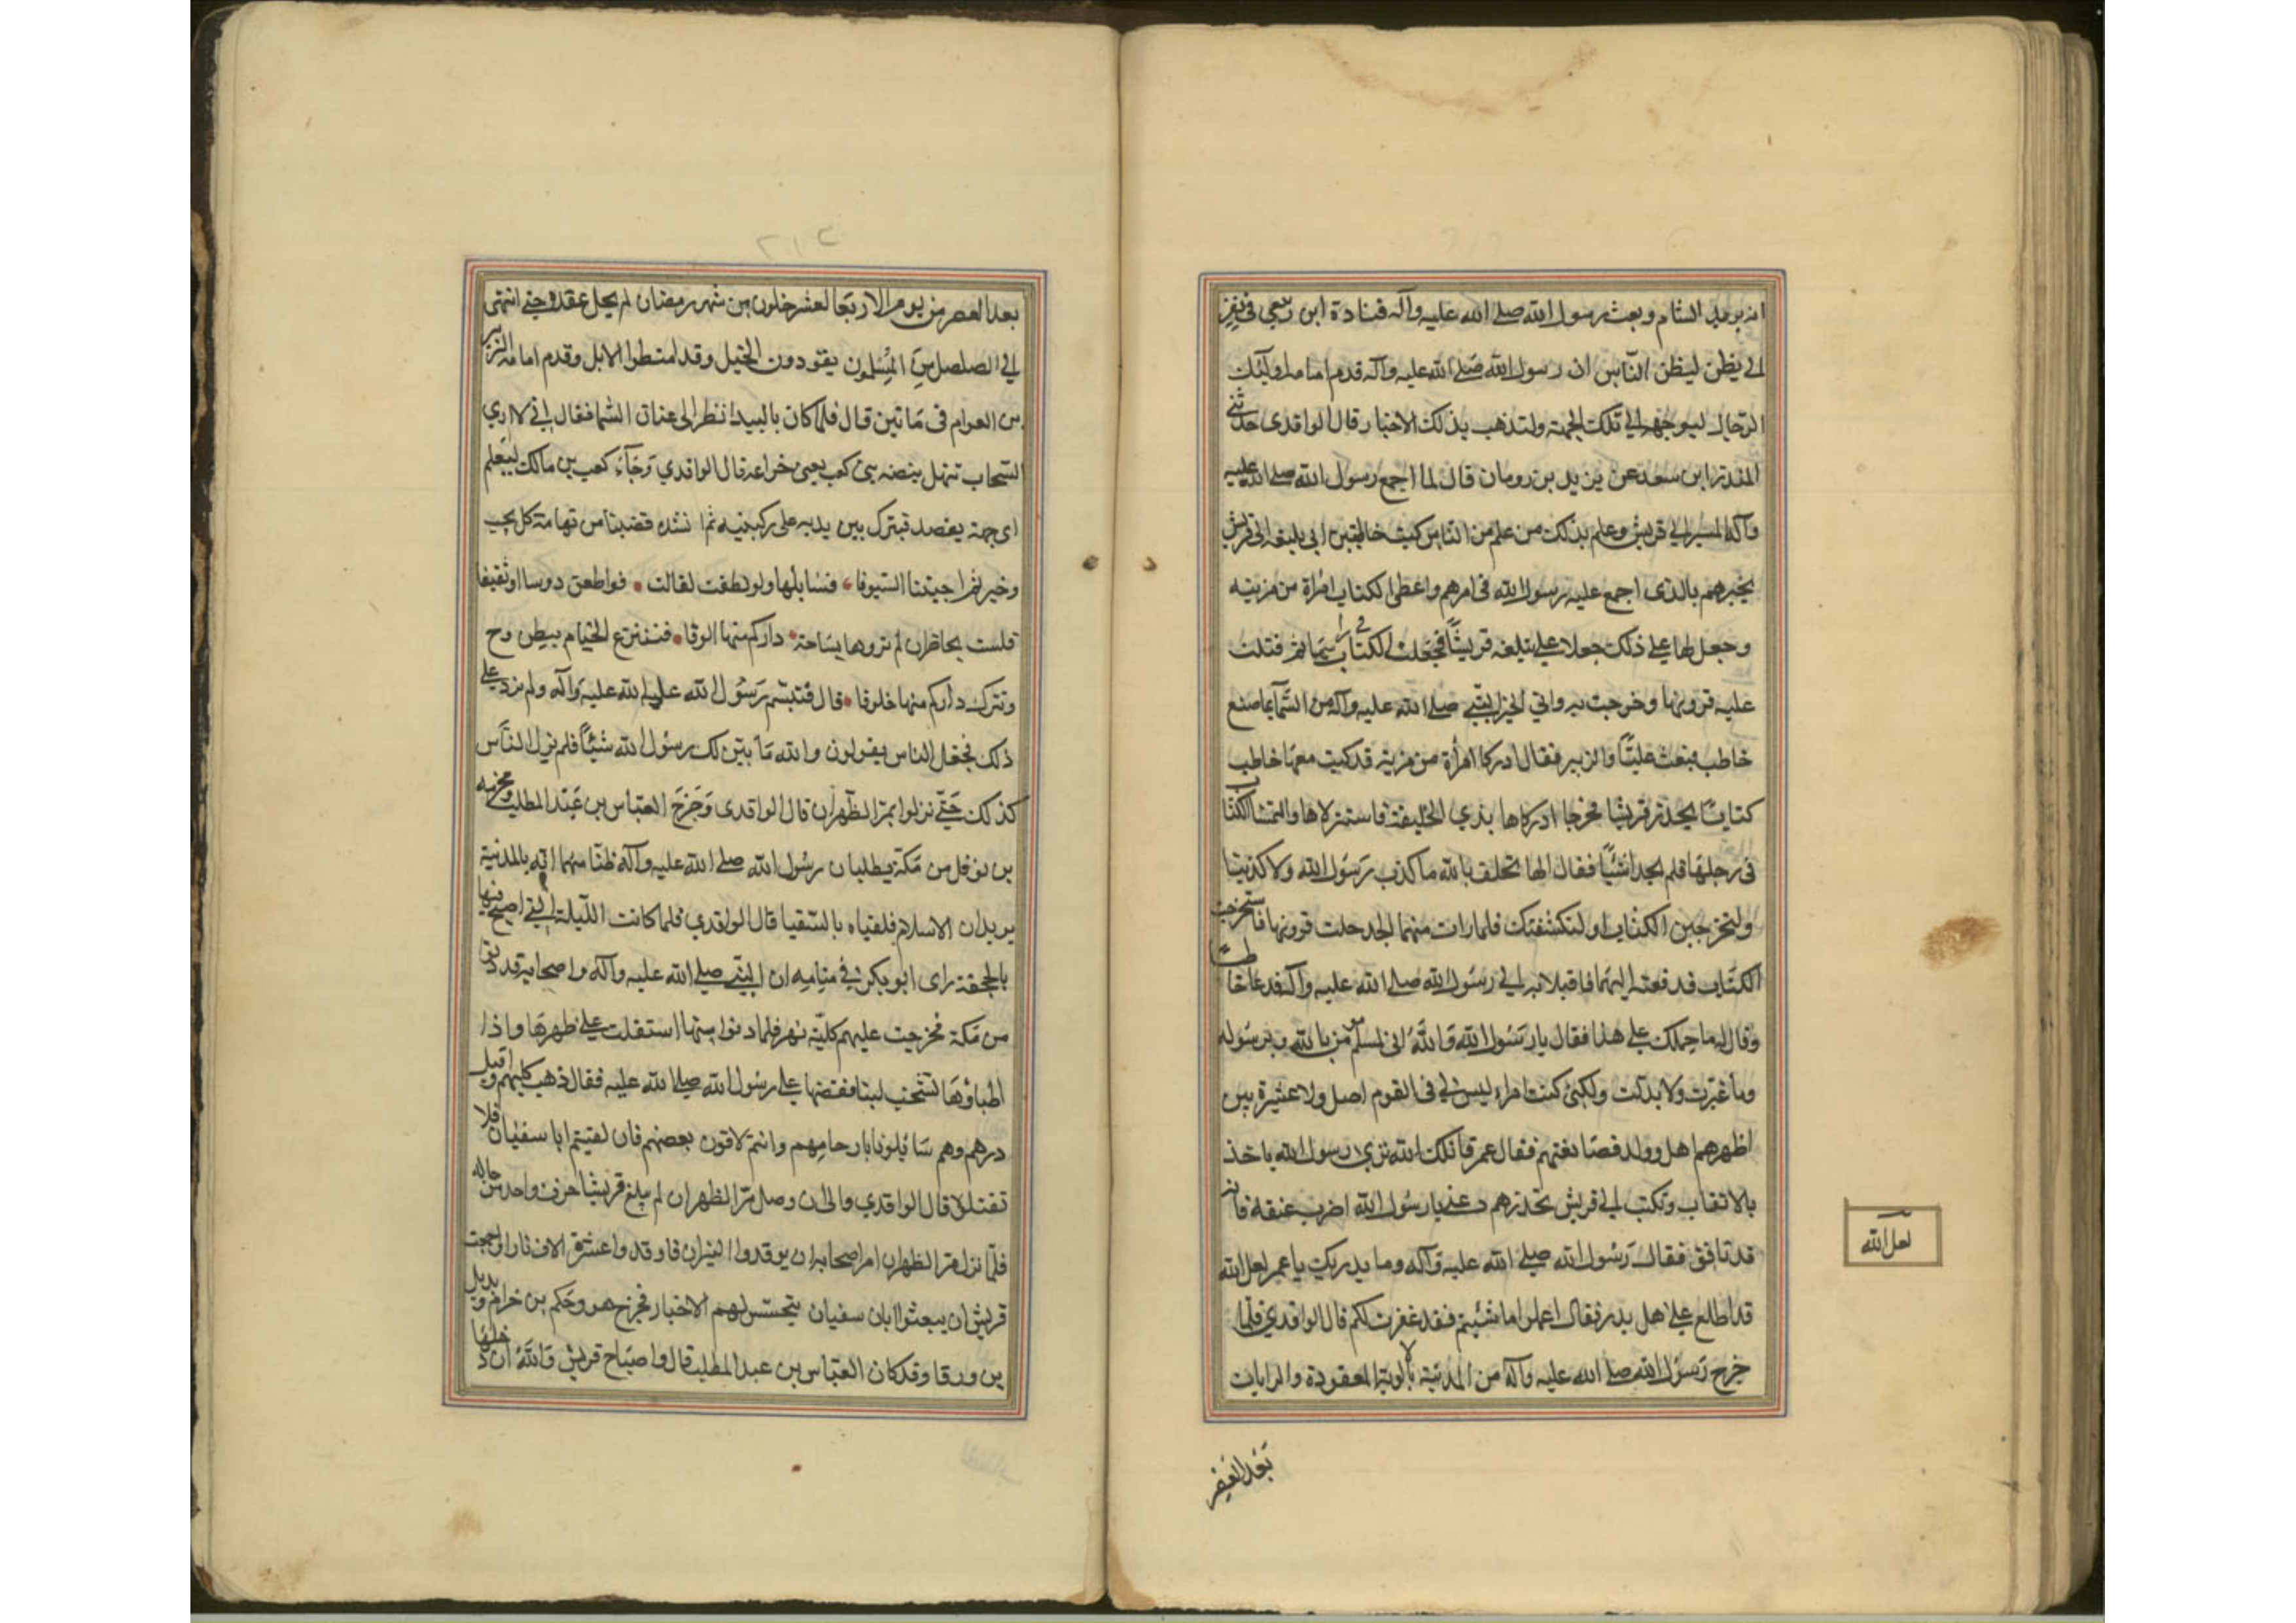 انه يريد الشام وبعث رسول الله صلى الله عليه وآله قتادة ابن ربعي في نفر
الى بطن ليظن الناس ان رسول الله صلى الله عليه وآله قدم امامه اولئك
الرجال ليوجهه الى تلك الجهة ولتذهب بذلك الاخبار قال الواقدى حدثني
المنذر ابن سعد عن يزيد بن رومان قال لما اجمع رسول الله صلى الله عليه
وآله المسير الى قريش وعلم بذلك من علم من الناس كتب خاطب بن ابى بلتعه الى قريش
يخبرهم بالذى اجمع عليه رسول الله فى امرهم واعطى الكتاب امراة من مزينه
وجعل لها على ذلك جعلا على تبلغه قريشاً فجعلت الكتاب في راسها ثم فتلت
عليه قرونها وخرجت به واتي الخبر النبي صلى الله عليه وآله من السماء بما صنع
خاطب فبعث عليّاً والزبير فقال ادركا امرأة من مزينه قد كتب معها خاطب
كتاباً يحذر قريشا فخرجا ادركاها بذي الحليفة فاستنزلاها والتمسا الكتاب
فى رحلها فلم يجدا شيئاً فقال الها نحلف بالله ما كذب رسول الله ولا كذبنا
ولتخرجين الكتاب او لنكشفنك فلما رات منهما الجد حلت قرونها فاستخرجت
الكتاب فدفعته اليهما فاقبلا به الى رسول الله صلى الله عليه وآله فدعا خاطبا
وقال له ما حملك على هذا فقال يا رسول الله والله انى لمسلم مؤمن بالله وبرسوله
وما غيرت ولا بدلت ولكنى كنت امراء ليس لى فى القوم اصل ولا عشيرة بين
اظهرهم اهل وولد فصانعتهم فقال عمر قاتلك الله ترى رسول الله ياخذ
بالانقاب وتكتب الى قريش تحذرهم دعنى يا رسول الله اضرب عنقه فانه
قد نافق فقال رسول الله صلى الله عليه وآله وما يدريك يا عمر لعل الله
قد اطلع على اهل بدر فقال اعملوا ما شئتم فقد غفرت لكم قال الواقدي فلما
خرج رسول الله صلى الله عليه وآله من المدينة بالوية المعقودة والرايات
بعد العصر
لعل الله
٢١٣
بعد العصر من يوم الاربعا لعشر خلون من شهر رمضان لم يحل عقده حتى انتهى
الى الصلصل المسلمون يقودون الخيل وقد امتطوا الابل وقدم امامه الزبير
بن العوام فى مأتين قال فلما كان بالبيدا نظر الى عنان السما فقال اني لارى
السحاب تنهل بنصر بنى كعب يعنى خزاعه قال الواقدي وجآء كعب بن مالك ليعلم
اى جهة يقصد فبترك بين يديه على ركبتيه ثم انشده قضينا من تهامة كل نحب
وخيبر ثم اجمتنا السيوفا فسائلها ولو نطقت لقالت قواطعهن دوسا او ثقيفا
فلست بحاظران لم تروها بساحة داركم منها الوفا فننتزع الخيام ببطن وج
ونترك داركم منها خلوفا قال فتبسم رسول الله صلى الله عليه وآله ولم يزد على
ذلك فجعل الناس يقولون والله ما بين لك رسول الله شيئاً فلم يزل الناس
كذلك حتى نزلوا بمر الظهران قال الواقدى وخرج العباس بن عبد المطلب ومخرمه
بن نوفل من مكة يطلبان رسول الله صلى الله عليه وآله ظنا منهما انه بالمدينة
يريدان الاسلام فلقياه بالسقيا قال الواقدي فلما كانت الليلة التي اصبح فيها
بالجحفة راى ابو بكر في منامه ان النبي صلى الله عليه وآله واصحابه قد دنوا
من مكة فخرجت عليهم كلبة تهر فلما دنوا منها استقلت على ظهرها واذا
اطباؤها تشخب لبنا فقصها على رسول الله صلى الله عليه فقال ذهب كلبهم واقبل
درهم وهم سائلونا بارحامهم وانتم لاقون بعضهم فان لقيتم ابا سفيان فلا
تقتلوه قال الواقدي والى ان وصل مر الظهران لم يبلغ قريشا حرف واحد من حاله
فلما نزل مر الظهران امر اصحابه ان يوقدوا النيران فاوقدوا عشرة الاف نار واجمعت
قريش ان يبعثوا ابان سفيان يتحسس لهم الاخبار فخرج هو وحكم بن خرام وبديل
بن ورقا وقد كان العباس بن عبد المطلب قال وا صباح قريش والله ان دخلها